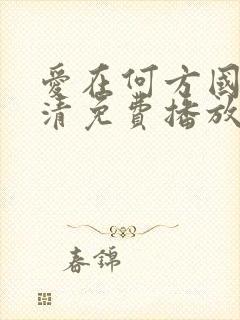 愛在何方國
清免費播放
春錦